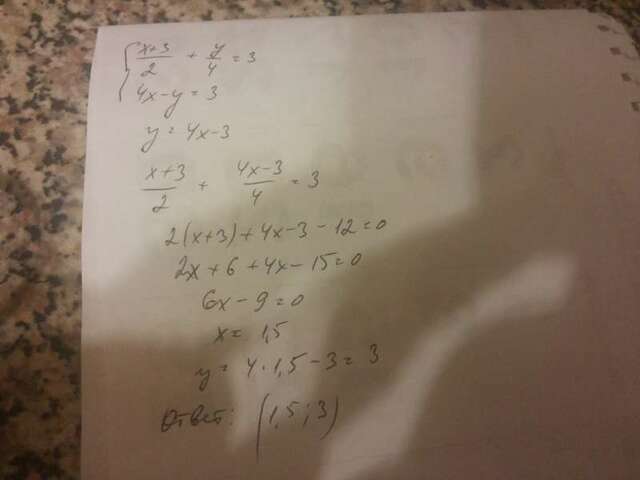 { (x+3)/2 + y/4 = 3
4x-y = 3
y = 4x-3
(x+3)/2 + (4x-3)/4 = 3
2(x+3)+4x-3-12=0
2x+6+4x-15=0
6x-9=0
x= 1,5
y= 4·1,5-3= 3
Ответ: (1,5;3)